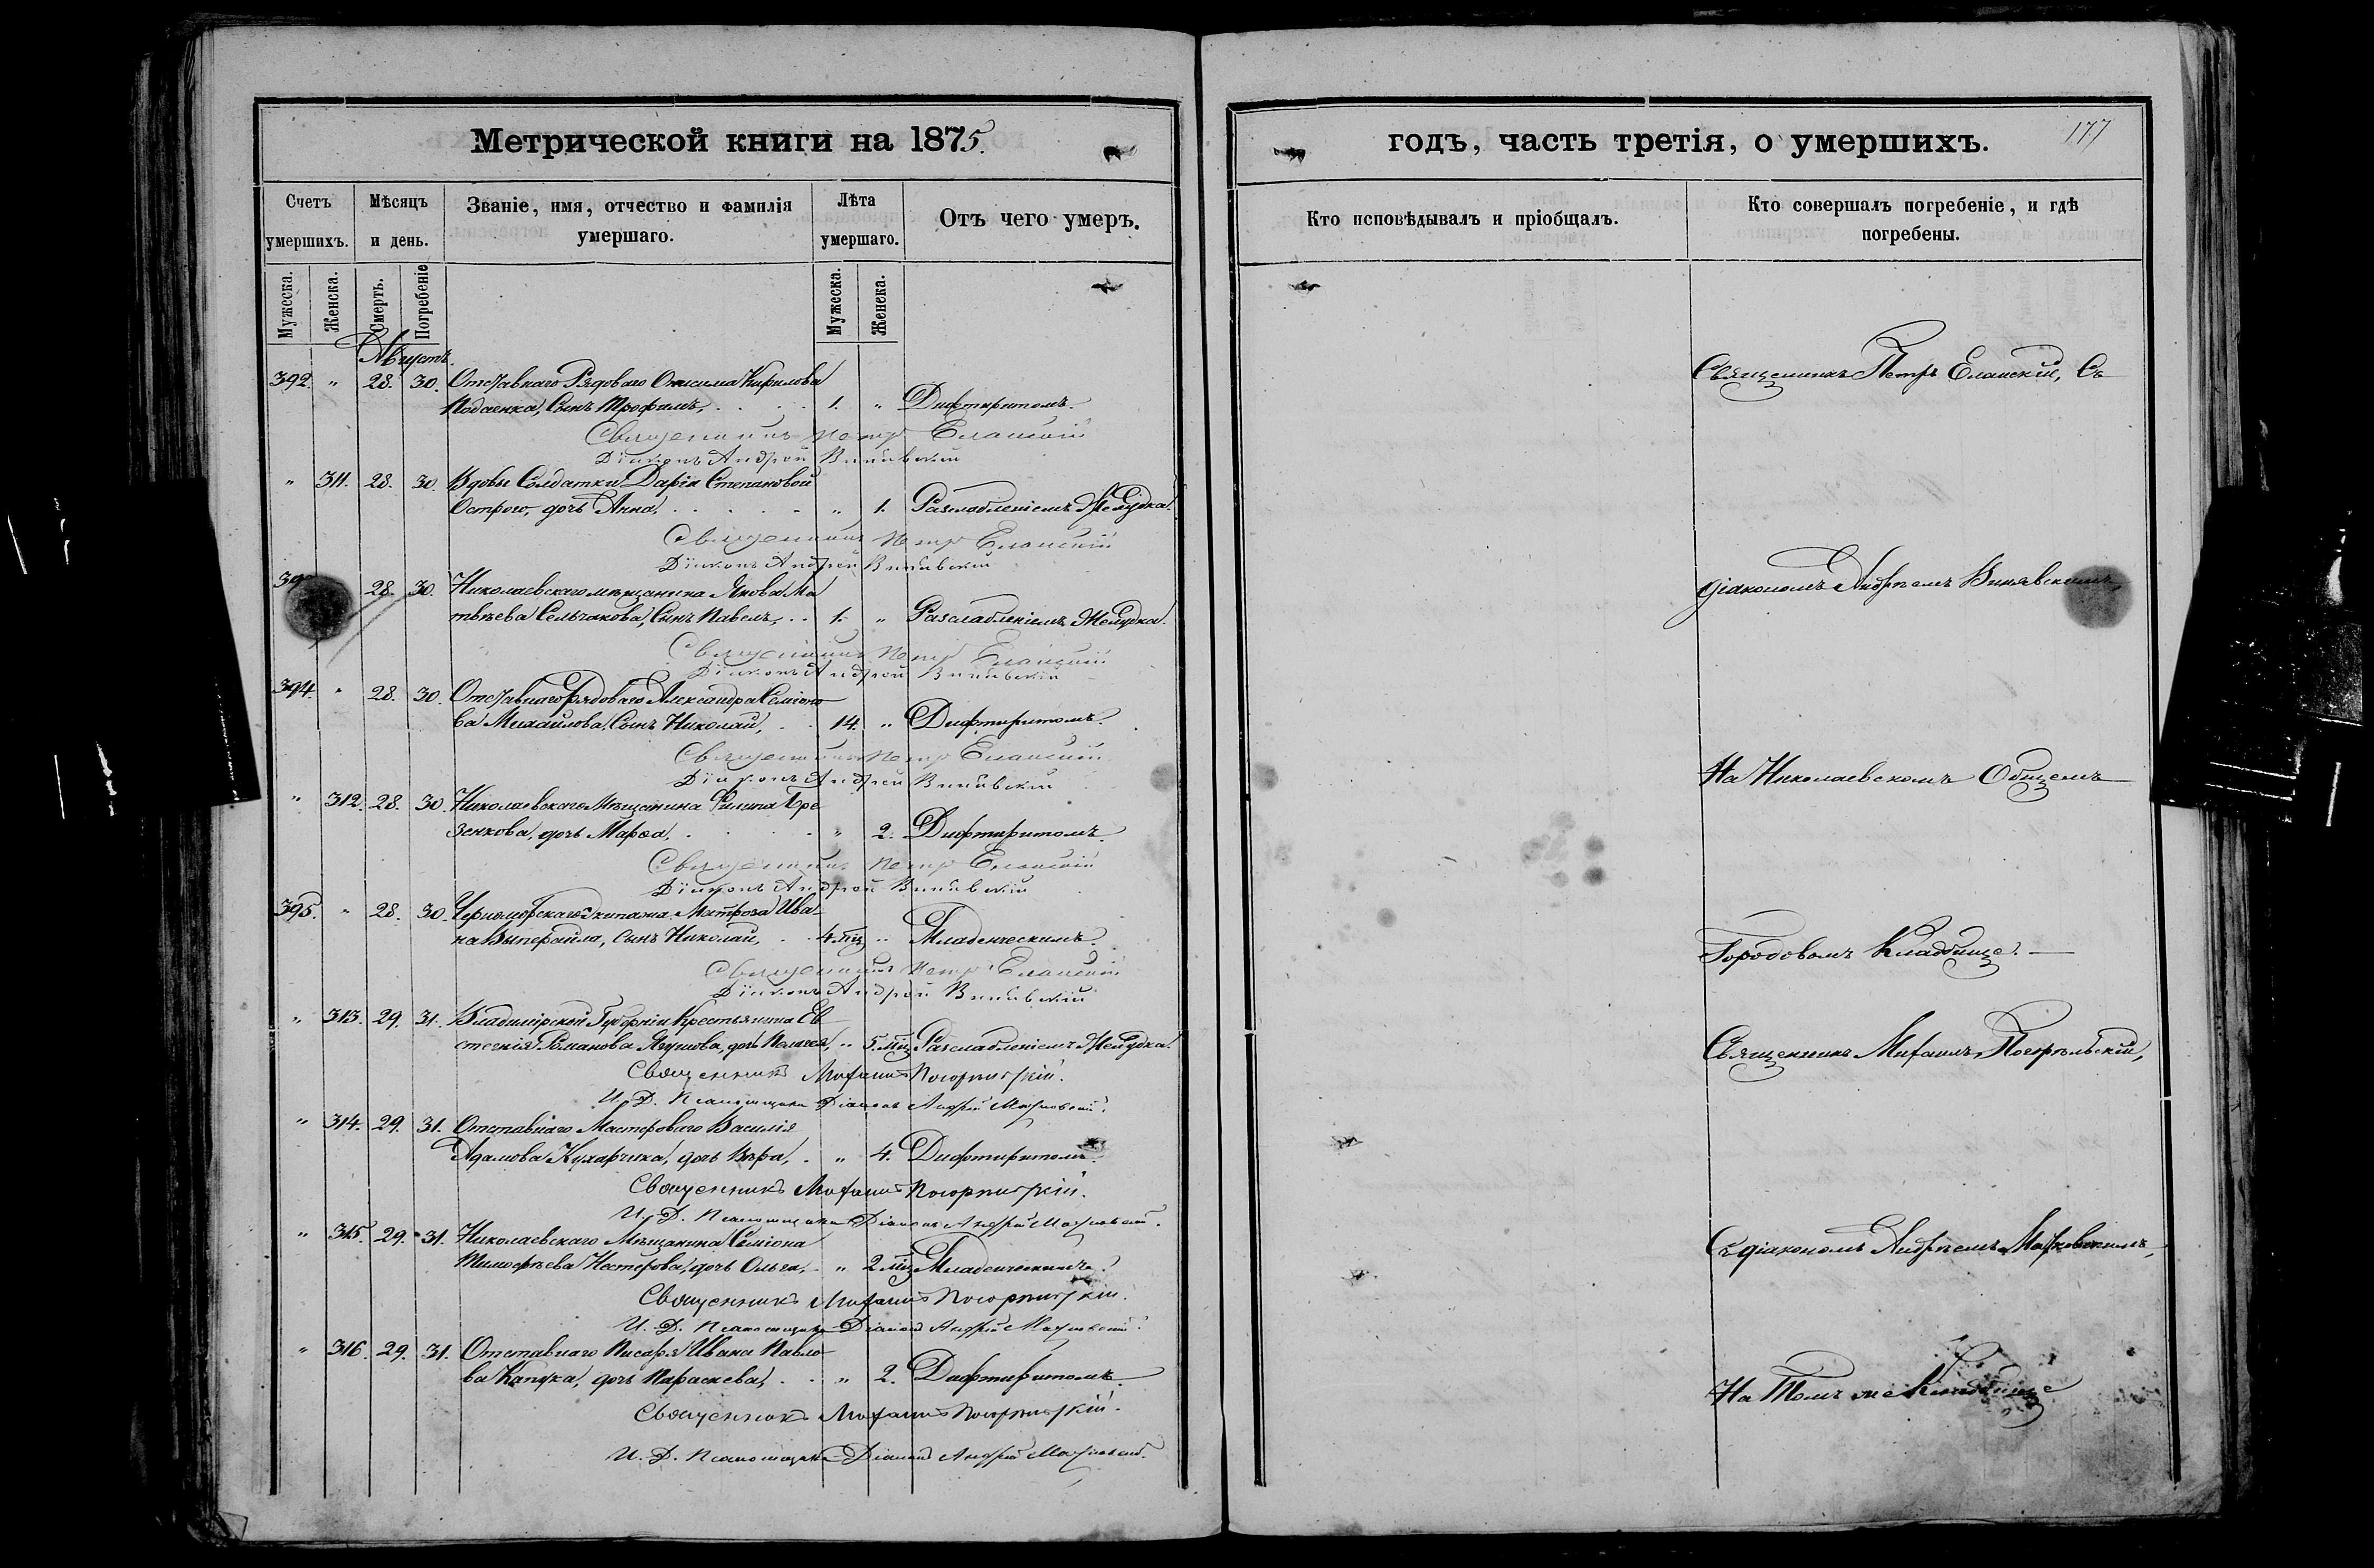 Метрической книги на 1875.
Счетъ умершихъ.
Мѣсяцъ и день.
Званіе, имя, отчество и фамилія умершаго.
Лѣта умершаго.
Отъ чего умеръ.
Мужеска.
Женска.
Смерть.
Погребеніе
Мужеска.
Женска.
Августъ.
392. " 28. 30. Отставнаго Рядоваго Онисима Кирилова
сынъ Трофимъ, 1. " Дифтиритомъ.
Священникъ Петръ Еланскій
Діаконъ Андрей Винявскій
" 311. 28. 30. Вдовы Солдатки Даріи Степановой
дочь Анна, " 1. Разслабленіемъ Желудка.
Священникъ Петръ Еланскій
Діаконъ Андрей Винявскій
28. 30. Николаевскаго мѣщанина Якова Ма
твѣева Сельчакова, Сынъ Павелъ, 1. " Разслабленіемъ Желудка.
Священникъ Петръ Еланскій
Діаконъ Андрей Винявскій
394. " 28. 30. Отставнаго Рядоваго Александра Семіоно
ва Михайлова, Сынъ Николай, 14. " Дифтиритомъ.
Священникъ Петръ Еланскій
Діаконъ Андрей Винявскій
" 312. 28. 30. Николаевскаго Мѣщанина Филипа
дочь Марѳа, " 2. Дифтиритомъ.
Священникъ Петръ Еланскій
Діаконъ Андрей Винявскій
395. " 28. 30. Черноморскаго Экипажа Матроза Ива
на сынъ Николай, 4 мц. " Младенческимъ.
Священникъ Петръ Еланскій
Діаконъ Андрей Винявскій
" 313. 29. 31. Владимірской Губерніи Крестьянина Ев
Романова дочь Пелагея, " 5 мц. Разслабленіемъ Желудка.
Священникъ Михаилъ
И. Д. Псаломщика Діаконъ Андрей
" 314. 29. 31. Отставнаго Мастероваго Василія
Адамова Кухарчика, дочь Вѣра, " 4. Дифтиритомъ.
Священникъ Михаилъ
И. Д. Псаломщика Діаконъ Андрей
" 315. 29. 31. Николаевскаго Мѣщанина Семіона
Тимофѣева Нестерова, дочь Ольга, " 2 мц. Младенческимъ.
Священникъ Михаилъ
И. Д. Псаломщика Діаконъ Андрей
" 316. 29. 31. Отставнаго Писаря Ивана Павло
ва дочь Параскева, " 2. Дифтиритомъ.
Священникъ Михаилъ
И. Д. Псаломщика Діаконъ Андрей
годъ, часть третія, о умершихъ.
177
Кто исповѣдывалъ и пріобщалъ.
Кто совершалъ погребеніе, и гдѣ погребены.
Священникъ Петръ Еланскій, Съ
діакономъ Андреемъ Винявскимъ,
На Николаевскомъ Общемъ
Городовомъ Кладбище.
Священникъ Михаилъ
Съ діакономъ Андреемъ
На Томъ же Кладбище